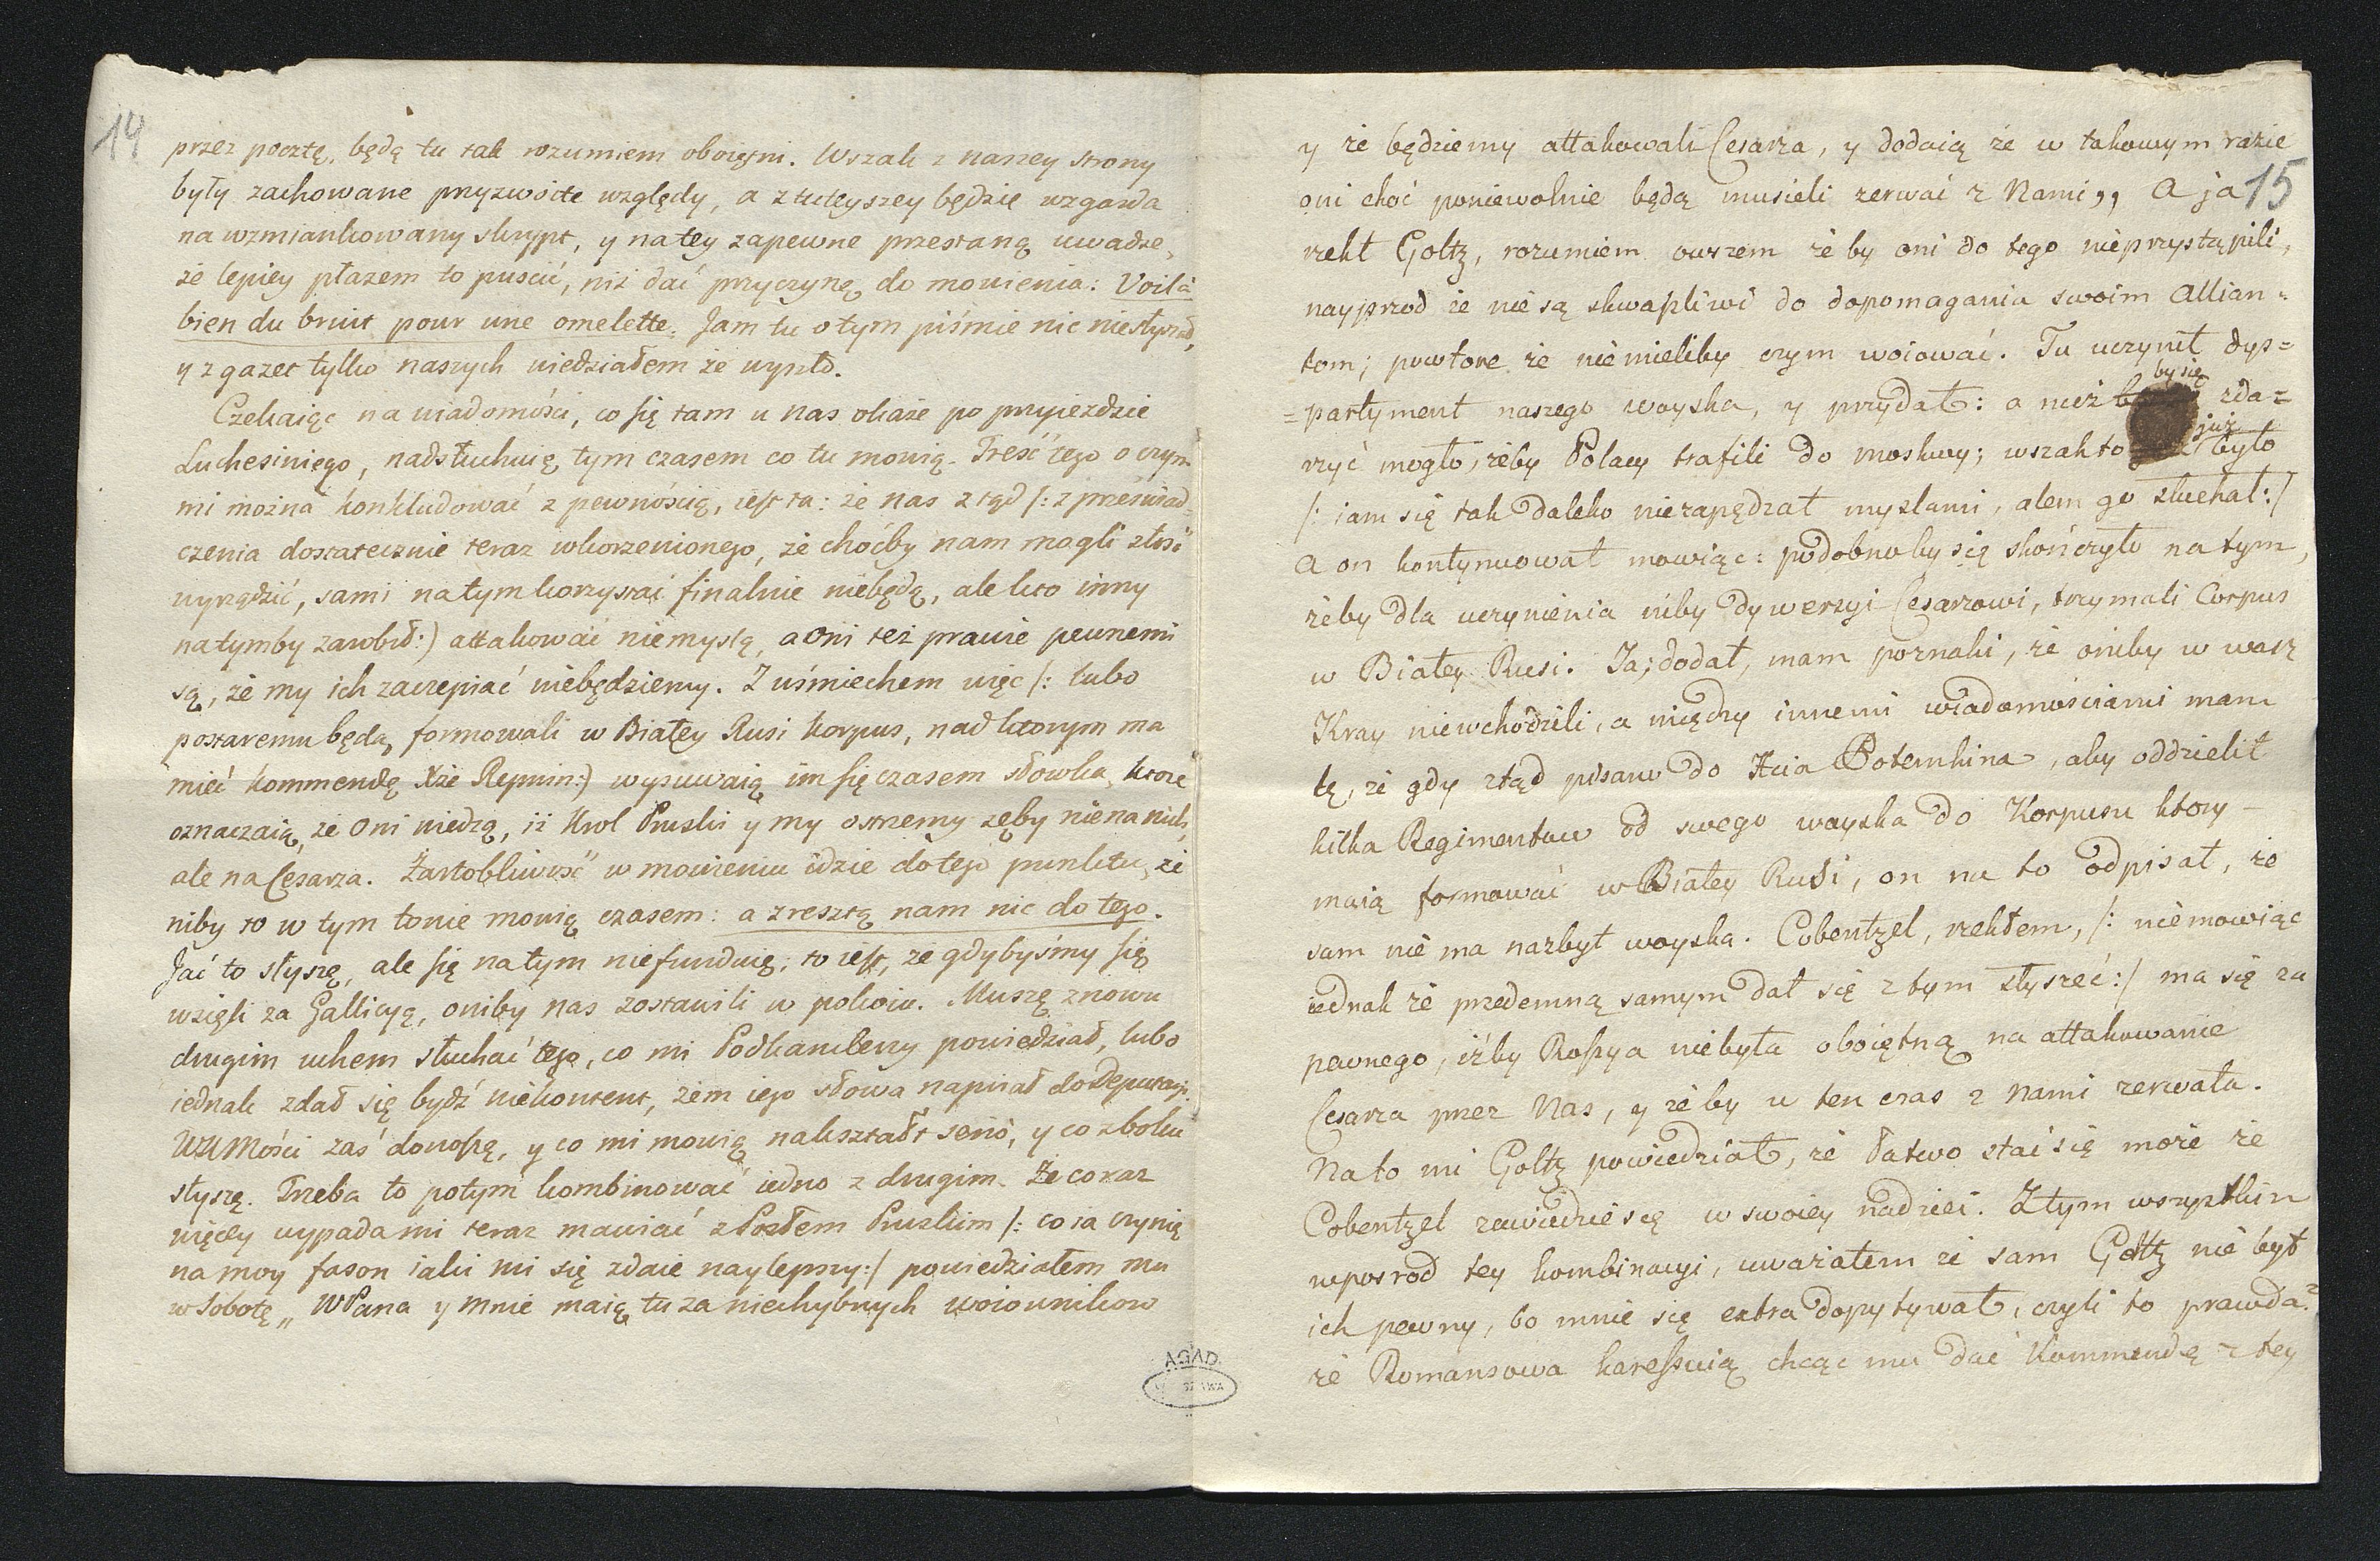 14
przez pocztę, będą tu tak rozumiem oboiętni. Wszak z naszey strony
były zachowane przyzwoite względy, a z tuteyszey będzie wzgarda
na wzmiankowany skrypt, y na tey zapewne przestaną uwadze,
że lepiey płazem to puscić, niż dać przyczynę do mowienia: Voilà
bien du bruit pour une omelette. Jam tu o tym piśmie nic niesłyszał,
y z gazet tylko naszych wiedziałem że wyszło.
Czekaiąc na wiadomości, co się tam u nas okaże po przyieżdzie
Luchesiniego, nadsłuchuię tym czasem co tu mowią. Treść tego o czym
mi można konkludować z pewnością, iest ta: że nas z tąd /: z przeświad-
czenia dostatecznie teraz wkorzenionego, że choćby nam mogli złość
wyrządzić, sami na tym korzystać finalnie niebędą, ale kto inny
na tymby zarobił:) attakować niemyslą, a oni też prawie pewnemi
są, że my ich zaczepiać niebędziemy. Z uśmiechem więc /: lubo
postaremu będą formowali w Białey Rusi Korpus, nad ktorym ma
mieć kommendę Xże Repnin:) wysuwaią im się czasem słowka, ktore
oznaczaią, że oni wiedzą, iż Krol Pruski y my ostrzemy zęby nie na nich,
ale na Cesarza. Żartobliwość w mowieniu idzie do tego punktu, że
niby to w tym tonie mowią czasem: a zresztą nam nic do tego.
Jać to słyszę, ale się na tym niefunduię; to iest, że gdybyśmy się
wzięli za Gallicyą, oniby nas zostawili w pokoiu. Muszę znowu
drugim uchem słuchać tego, co mi Podkanclerzy powiedział, lubo
iednak zdał się bydź niekontent, żem iego słowa napisał do Deputacyi.
WXMości zaś donoszę, y co mi mowią nakształt serio, y co z boku
słyszę. Trzeba to potym kombinować iedno z drugim. Że coraz
więcey wypada mi teraz mawiać z Posłem Pruskim /: co ia czynię
na moy fason iaki mi się zdaie naylepszy:/ powiedziałem mu
w Sobotę „ WPana y mnie maią tu za niechybnych woiownikow
AGAD
15
y że będziemy attakowali Cesarza, y dodaią że w takowym razie
oni choć poniewolnie będą musieli zerwać z Nami,, A ja
rzekł Goltz, rozumiem owszem że by oni do tego nieprzystąpili,
nayprzod że nie są skwapliwi do dopomagania swoim Allian-
tom; powtore że niemieliby czym woiować. Tu uczynił dys=
=partyment naszego woyska, y przydał: a nuż by się zda=
rzyć mogło, żeby Polacy trafili do moskwy; wszak to już było
/: iam się tak daleko niezapędzał myslami, alem go słuchał:/
A on kontynuował mowiąc: podobnoby się skończyło na tym,
żeby dla uczynienia niby dywersyi Cesarzowi, trzymali Corpus
w Białey Rusi. Ja; dodał, mam poznaki, że oniby w wasz
Kray niewchodzili, a między innemi wiadomościami mam
tę, że gdy ztąd pisano do Xcia Potemkina, aby oddzielił
kilka Regimentow od swego woyska do Korpusu ktory –
maią formować w Białey Rusi, on na to odpisał, że
sam nie ma nazbyt woyska. Cobentzel, rzekłem, /: niemowiąc
iednak że przedemną samym dał się z tym słyszeć:/ ma się za
pewnego, iżby Rossya niebyła oboiętną na attakowanie
Cesarza przez Nas, y żeby w ten czas z nami zerwała.
Na to mi Goltz powiedział, że łatwo stać się może że
Cobentzel zawiedzie się w swoiey nadziei. Z tym wszystkim
wposrod tey kombinacyi, uważałem że sam Goltz nie był
ich pewny, bo mnie się extra dopytywał, czyli to prawda?
że Romansowa karessuią chcąc mu dać Kommendę z tey